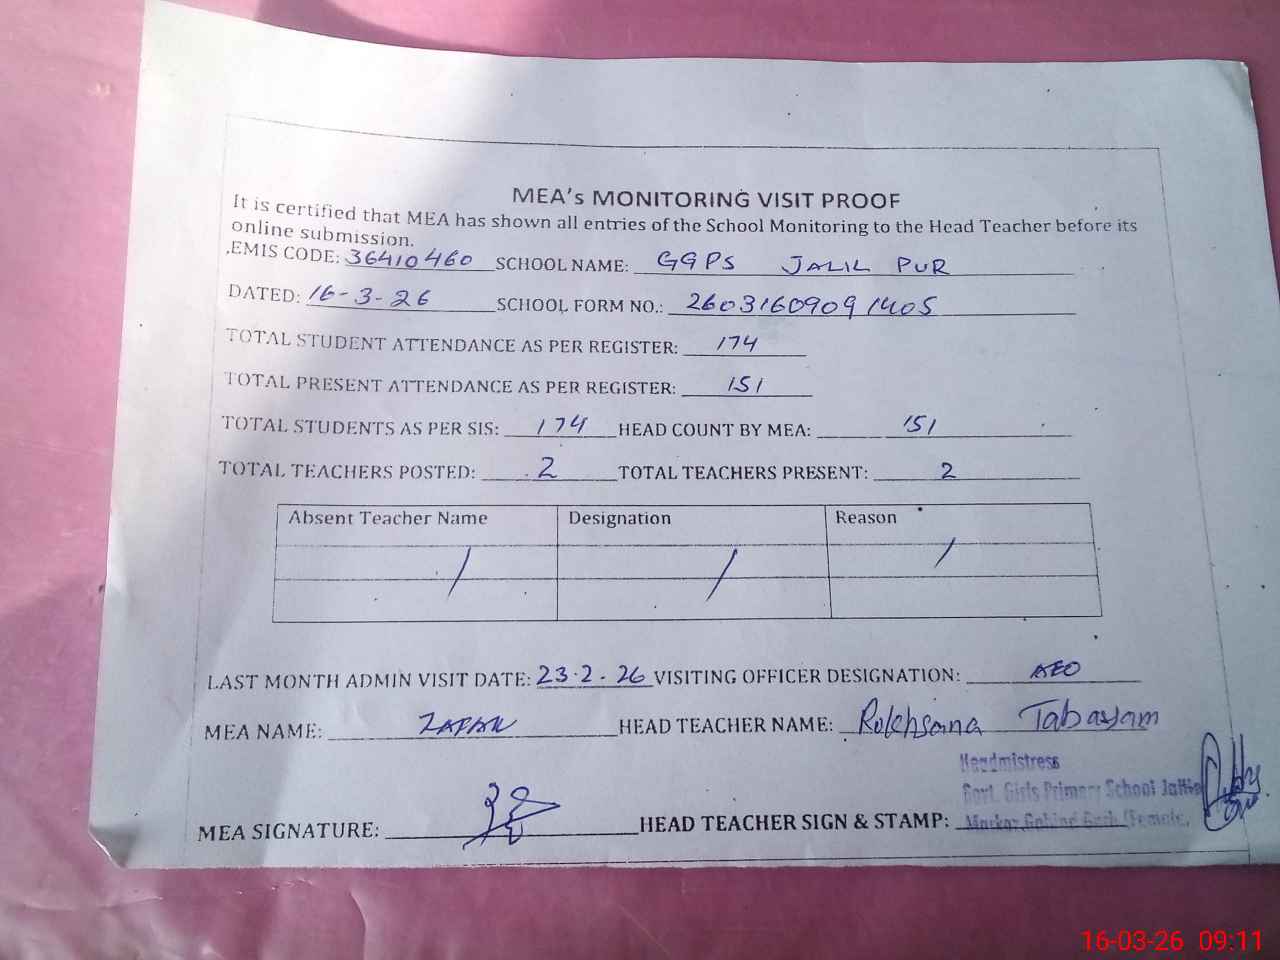 MEA's MONITORING VISIT PROOF
It is certified that MEA has shown all entries of the School Monitoring to the Head Teacher before its
online submission.
EMIS CODE: 36410460 SCHOOL NAME: GGPS JALIL PUR
DATED: 16-3-26 SCHOOL FORM NO.: 26031609091405
TOTAL STUDENT ATTENDANCE AS PER REGISTER: 174
TOTAL PRESENT ATTENDANCE AS PER REGISTER: 151
TOTAL STUDENTS AS PER SIS: 174 HEAD COUNT BY MEA: 151
TOTAL TEACHERS POSTED: 2 TOTAL TEACHERS PRESENT: 2
Absent Teacher Name Designation Reason
/ / /
LAST MONTH ADMIN VISIT DATE: 23.2.26 VISITING OFFICER DESIGNATION: AEO
MEA NAME: ZAFAR HEAD TEACHER NAME: Rukhsana Tabassam
Headmistress
Govt. Girls Primary School
MEA SIGNATURE: HEAD TEACHER SIGN & STAMP: Markaz (Female)
16-03-26 09:11